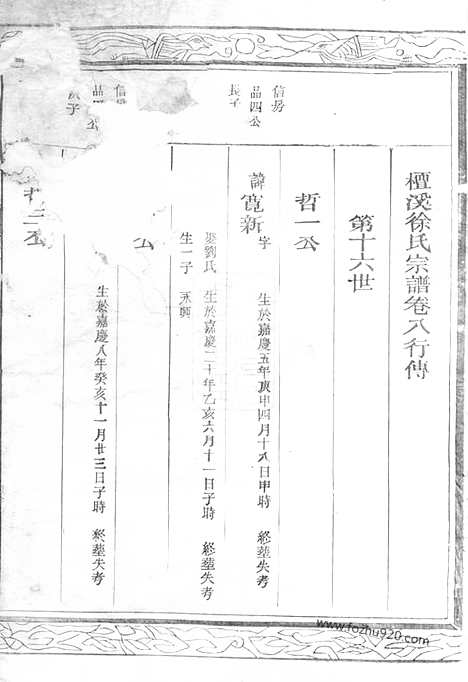 檀溪徐氏宗譜卷八行傳
第十六世
信房
品四公
長子
哲一公
諱寬新
字
生於嘉慶五年庚申四月十九日申時
終塟失考
娶劉氏
生於嘉慶二十年乙亥六月十一日子時
終塟失考
生一子
永興
信房
品
公
公
生於嘉慶八年癸亥十一月廿三日子時
終塟失考
子
哲三公
www.fozhu920.com